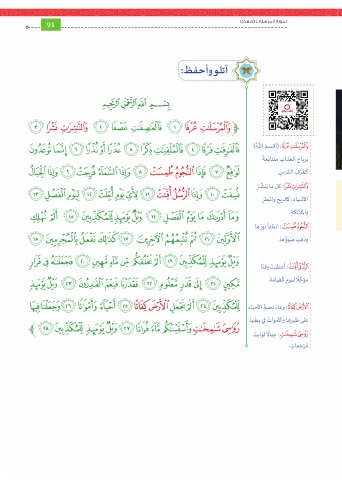 سورة المرسلات (حفظ)
91
أتلو وأحفظ:
بِسْمِ اللَّهِ الرَّحْمَٰنِ الرَّحِيمِ
﴿ وَالْمُرْسَلَاتِ عُرْفًا ١ فَالْعَاصِفَاتِ عَصْفًا ٢ وَالنَّاشِرَاتِ نَشْرًا ٣
فَالْفَارِقَاتِ فَرْقًا ٤ فَالْمُلْقِيَاتِ ذِكْرًا ٥ عُذْرًا أَوْ نُذْرًا ٦ إِنَّمَا تُوعَدُونَ
لَوَاقِعٌ ٧ فَإِذَا النُّجُومُ طُمِسَتْ ٨ وَإِذَا السَّمَاءُ فُرِجَتْ ٩ وَإِذَا الْجِبَالُ
نُسِفَتْ ١٠ وَإِذَا الرُّسُلُ أُقِّتَتْ ١١ لِأَيِّ يَوْمٍ أُجِّلَتْ ١٢ لِيَوْمِ الْفَصْلِ ١٣
وَمَا أَدْرَاكَ مَا يَوْمُ الْفَصْلِ ١٤ وَيْلٌ يَوْمَئِذٍ لِّلْمُكَذِّبِينَ ١٥ أَلَمْ نُهْلِكِ
الْأَوَّلِينَ ١٦ ثُمَّ نُتْبِعُهُمُ الْآخِرِينَ ١٧ كَذَٰلِكَ نَفْعَلُ بِالْمُجْرِمِينَ ١٨
وَيْلٌ يَوْمَئِذٍ لِّلْمُكَذِّبِينَ ١٩ أَلَمْ نَخْلُقكُّم مِّن مَّاءٍ مَّهِينٍ ٢٠ فَجَعَلْنَاهُ فِي قَرَارٍ
مَّكِينٍ ٢١ إِلَىٰ قَدَرٍ مَّعْلُومٍ ٢٢ فَقَدَرْنَا فَنِعْمَ الْقَادِرُونَ ٢٣ وَيْلٌ يَوْمَئِذٍ
لِّلْمُكَذِّبِينَ ٢٤ أَلَمْ نَجْعَلِ الْأَرْضَ كِفَاتًا ٢٥ أَحْيَاءً وَأَمْوَاتًا ٢٦ وَجَعَلْنَا فِيهَا
رَوَاسِيَ شَامِخَاتٍ وَأَسْقَيْنَاكُم مَّاءً فُرَاتًا ٢٧ وَيْلٌ يَوْمَئِذٍ لِّلْمُكَذِّبِينَ ٢٨ ﴾
وَالْمُرْسَلَاتِ عُرْفًا: (أقسم الله)
برياح العذاب متتابعة
كعُرف الفرس.
وَالنَّاشِرَاتِ نَشْرًا: كل ما ينشر
الأشياء، كالريح والمطر
والملائكة.
النُّجُومُ طُمِسَتْ: انطفأ نورها
وذهب ضوؤها.
الرُّسُلُ أُقِّتَتْ: أعطيت وقتًا
مؤجلًا ليوم القيامة.
الْأَرْضَ كِفَاتًا: وعاءً تضم الأحياء
على ظهرها والأموات في بطنها.
رَوَاسِيَ شَامِخَاتٍ: جبالًا ثوابت
مرتفعات.